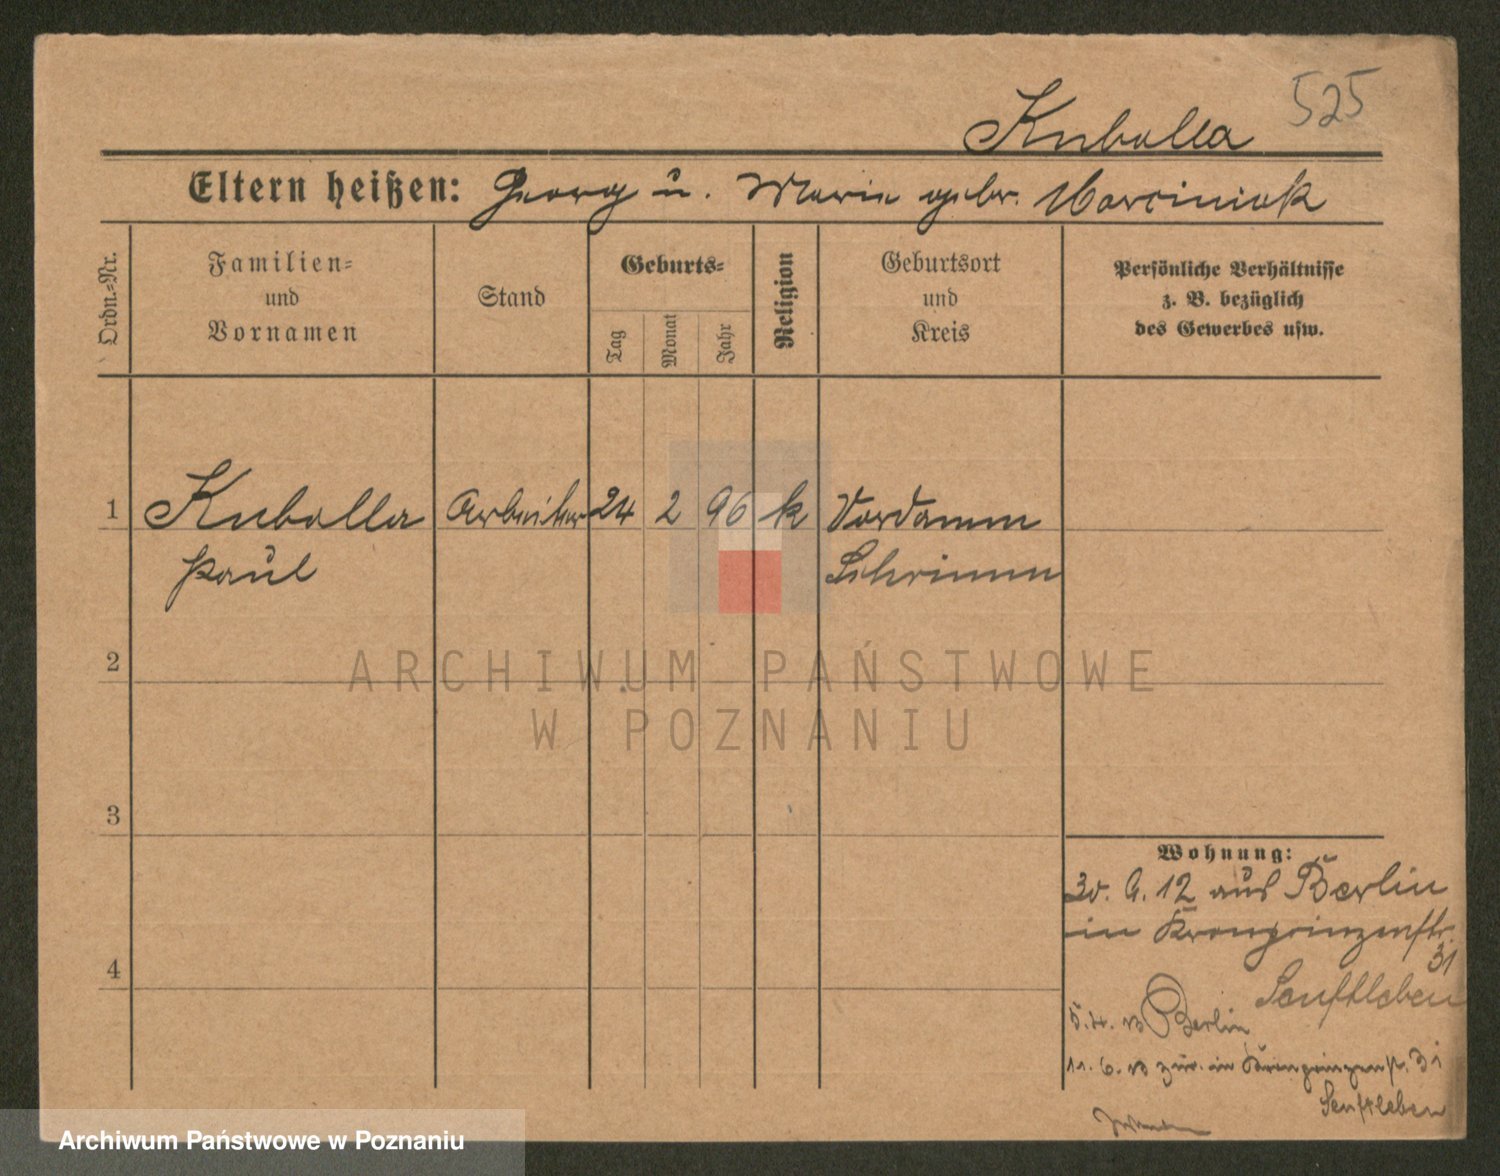 525
Kuballa
Eltern heißen: Georg u. Marie gebr. Marciniak
Ordn.-Nr.
Familien-
und
Vornamen
Stand
Geburts-
Tag
Monat
Jahr
Religion
Geburtsort
und
Kreis
Persönliche Verhältnisse
z. B. bezüglich
des Gewerbes usw.
1 Kuballa Arbeiter 24 2 96 k Vordamm
Paul Schrimm
2
ARCHIWUM PAŃSTWOWE
W POZNANIU
3
Wohnung:
30. 9. 12 aus Berlin
in Kronprinzenstr.
31
4
Senftleben
5. 4. 13 Berlin
11. 6. 13 zur. in 31
Senftleben
Archiwum Państwowe w Poznaniu